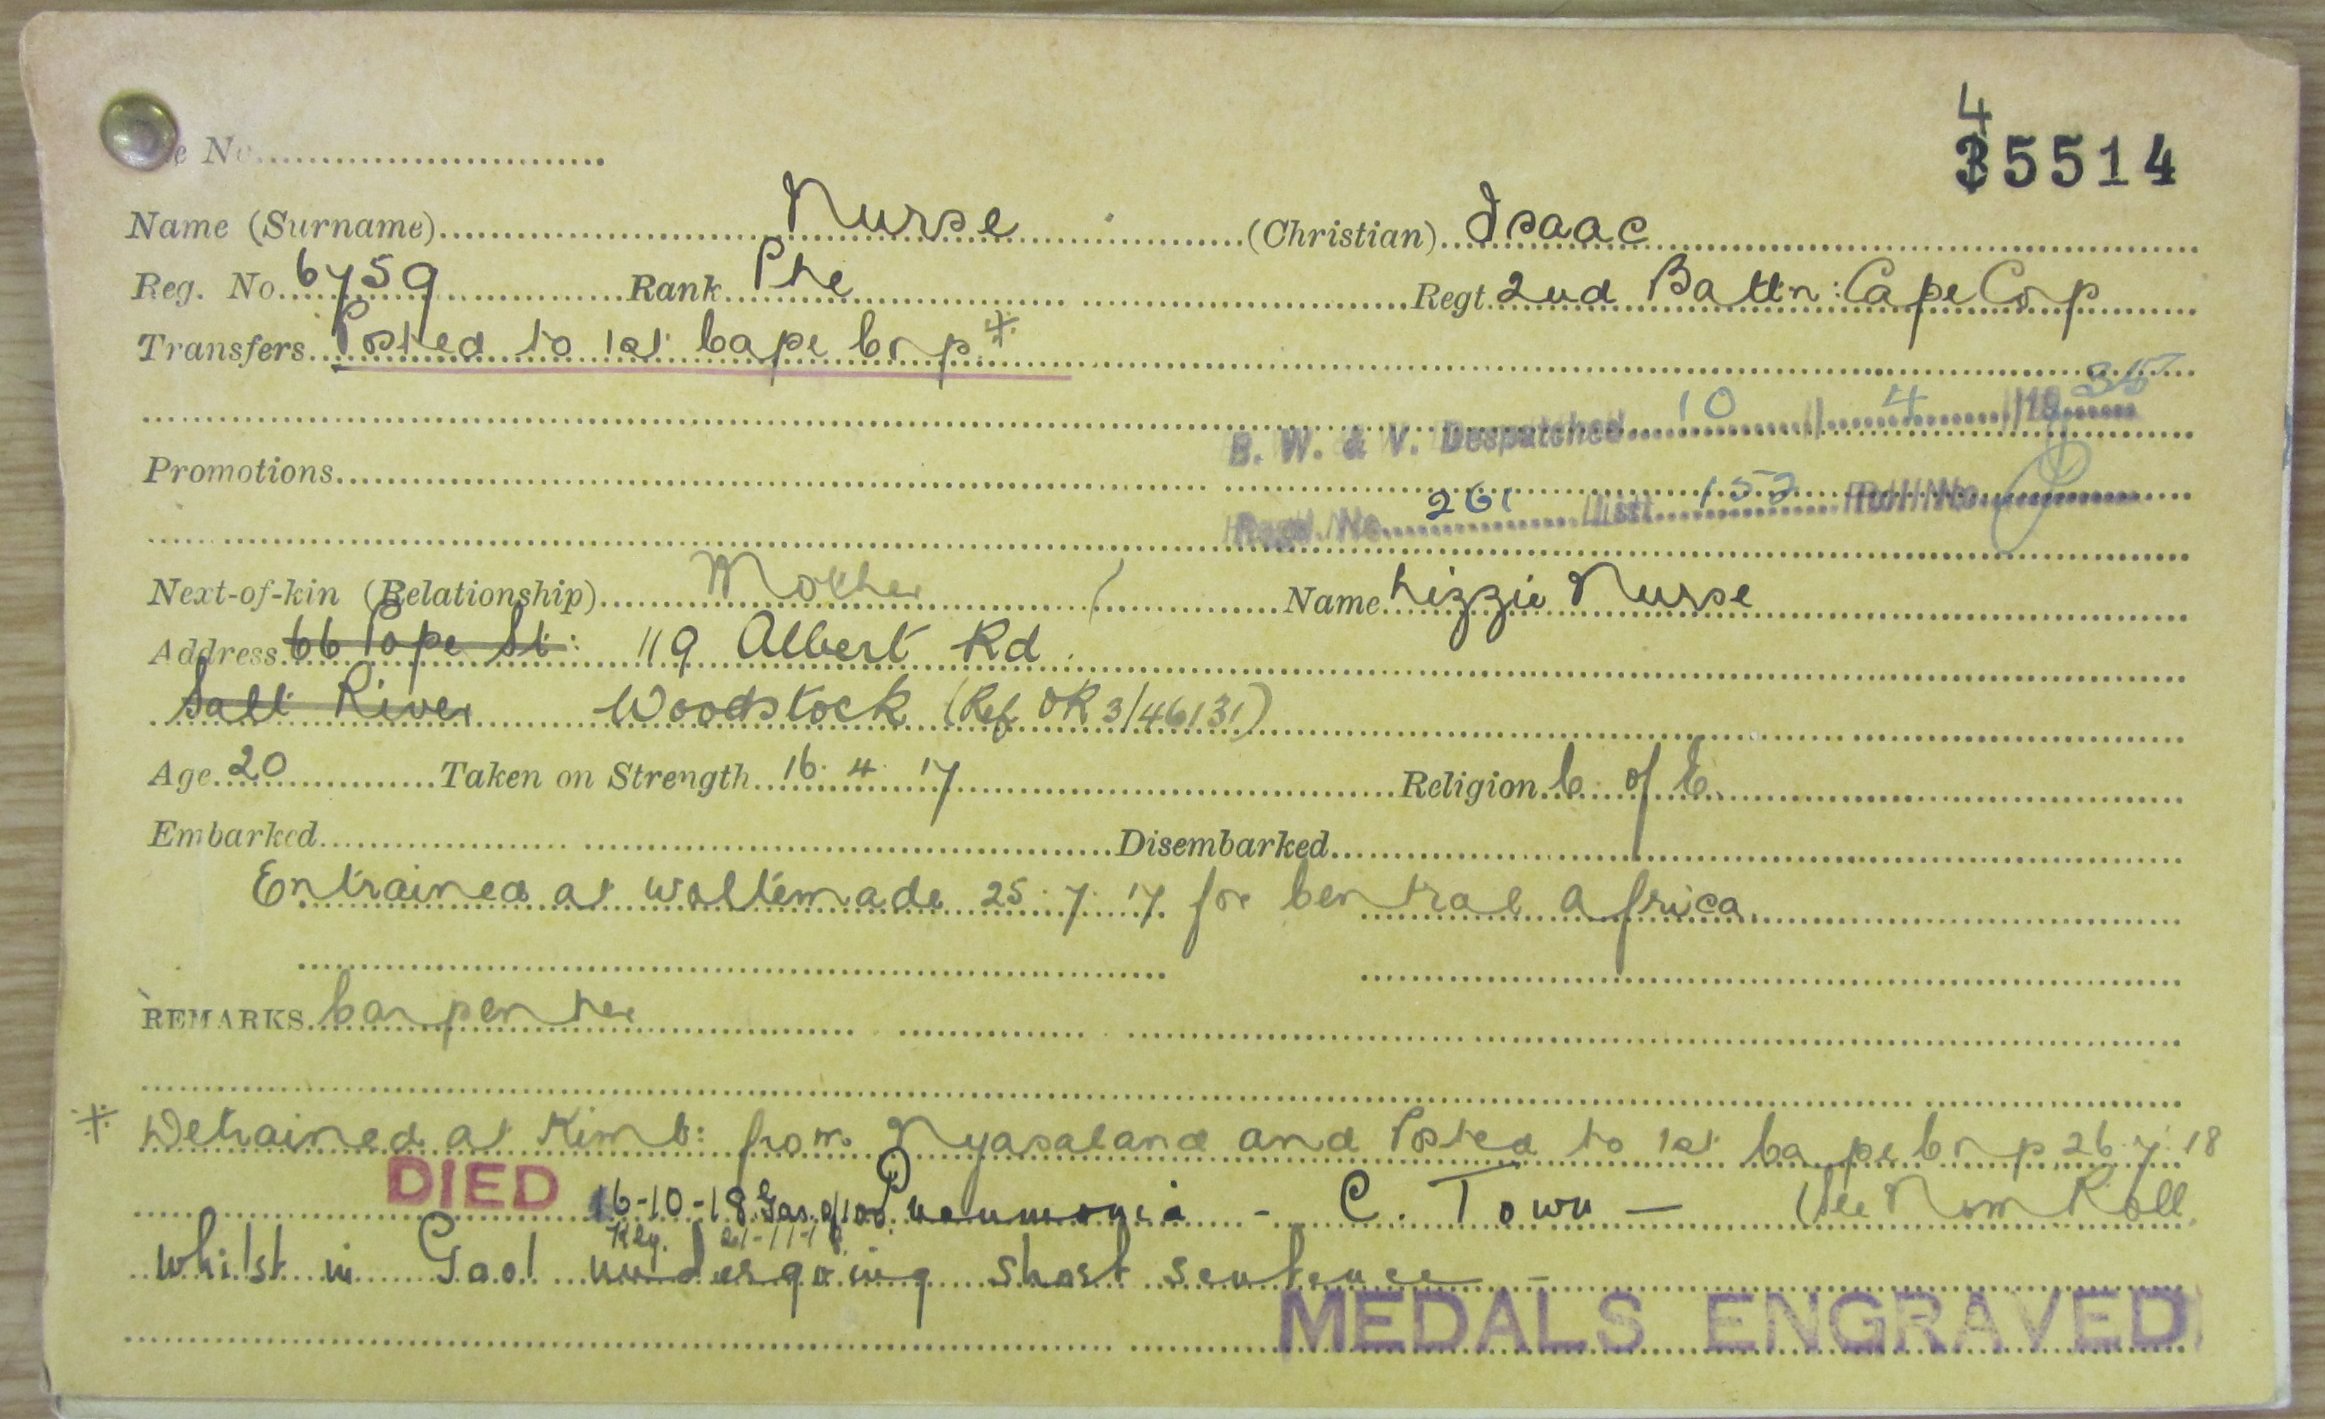 4
35514
e No
Name (Surname) Nurse (Christian) Isaac
Reg. No. 6759 Rank Pte Regt. 2nd Battn: Cape Corp
Transfers Posted to 1st Cape Crp *
B. W. & V. Despatched 10 / 4 /19 35
Promotions
Regd. No. 261 List 153 Roll No.
Next-of-kin (Relationship) Mother Name Lizzie Nurse
Address 66 Pope St: 119 Albert Rd.
Salt River Woodstock (Ref OR 3/46131)
Age 20 Taken on Strength 16. 4. 17 Religion C. of E.
Embarked Disembarked
Entrained at Woltemade 25. 7. 17. for Central Africa
REMARKS Carpenter
* Detrained at Kimb: from Nyasaland and Posted to 1st Cape Crp 26. 7. 18
DIED 16-10-18 Pneumonia - C. Town — Nom Roll.
21-11-18
whilst in Gaol undergoing short sentence —
MEDALS ENGRAVED